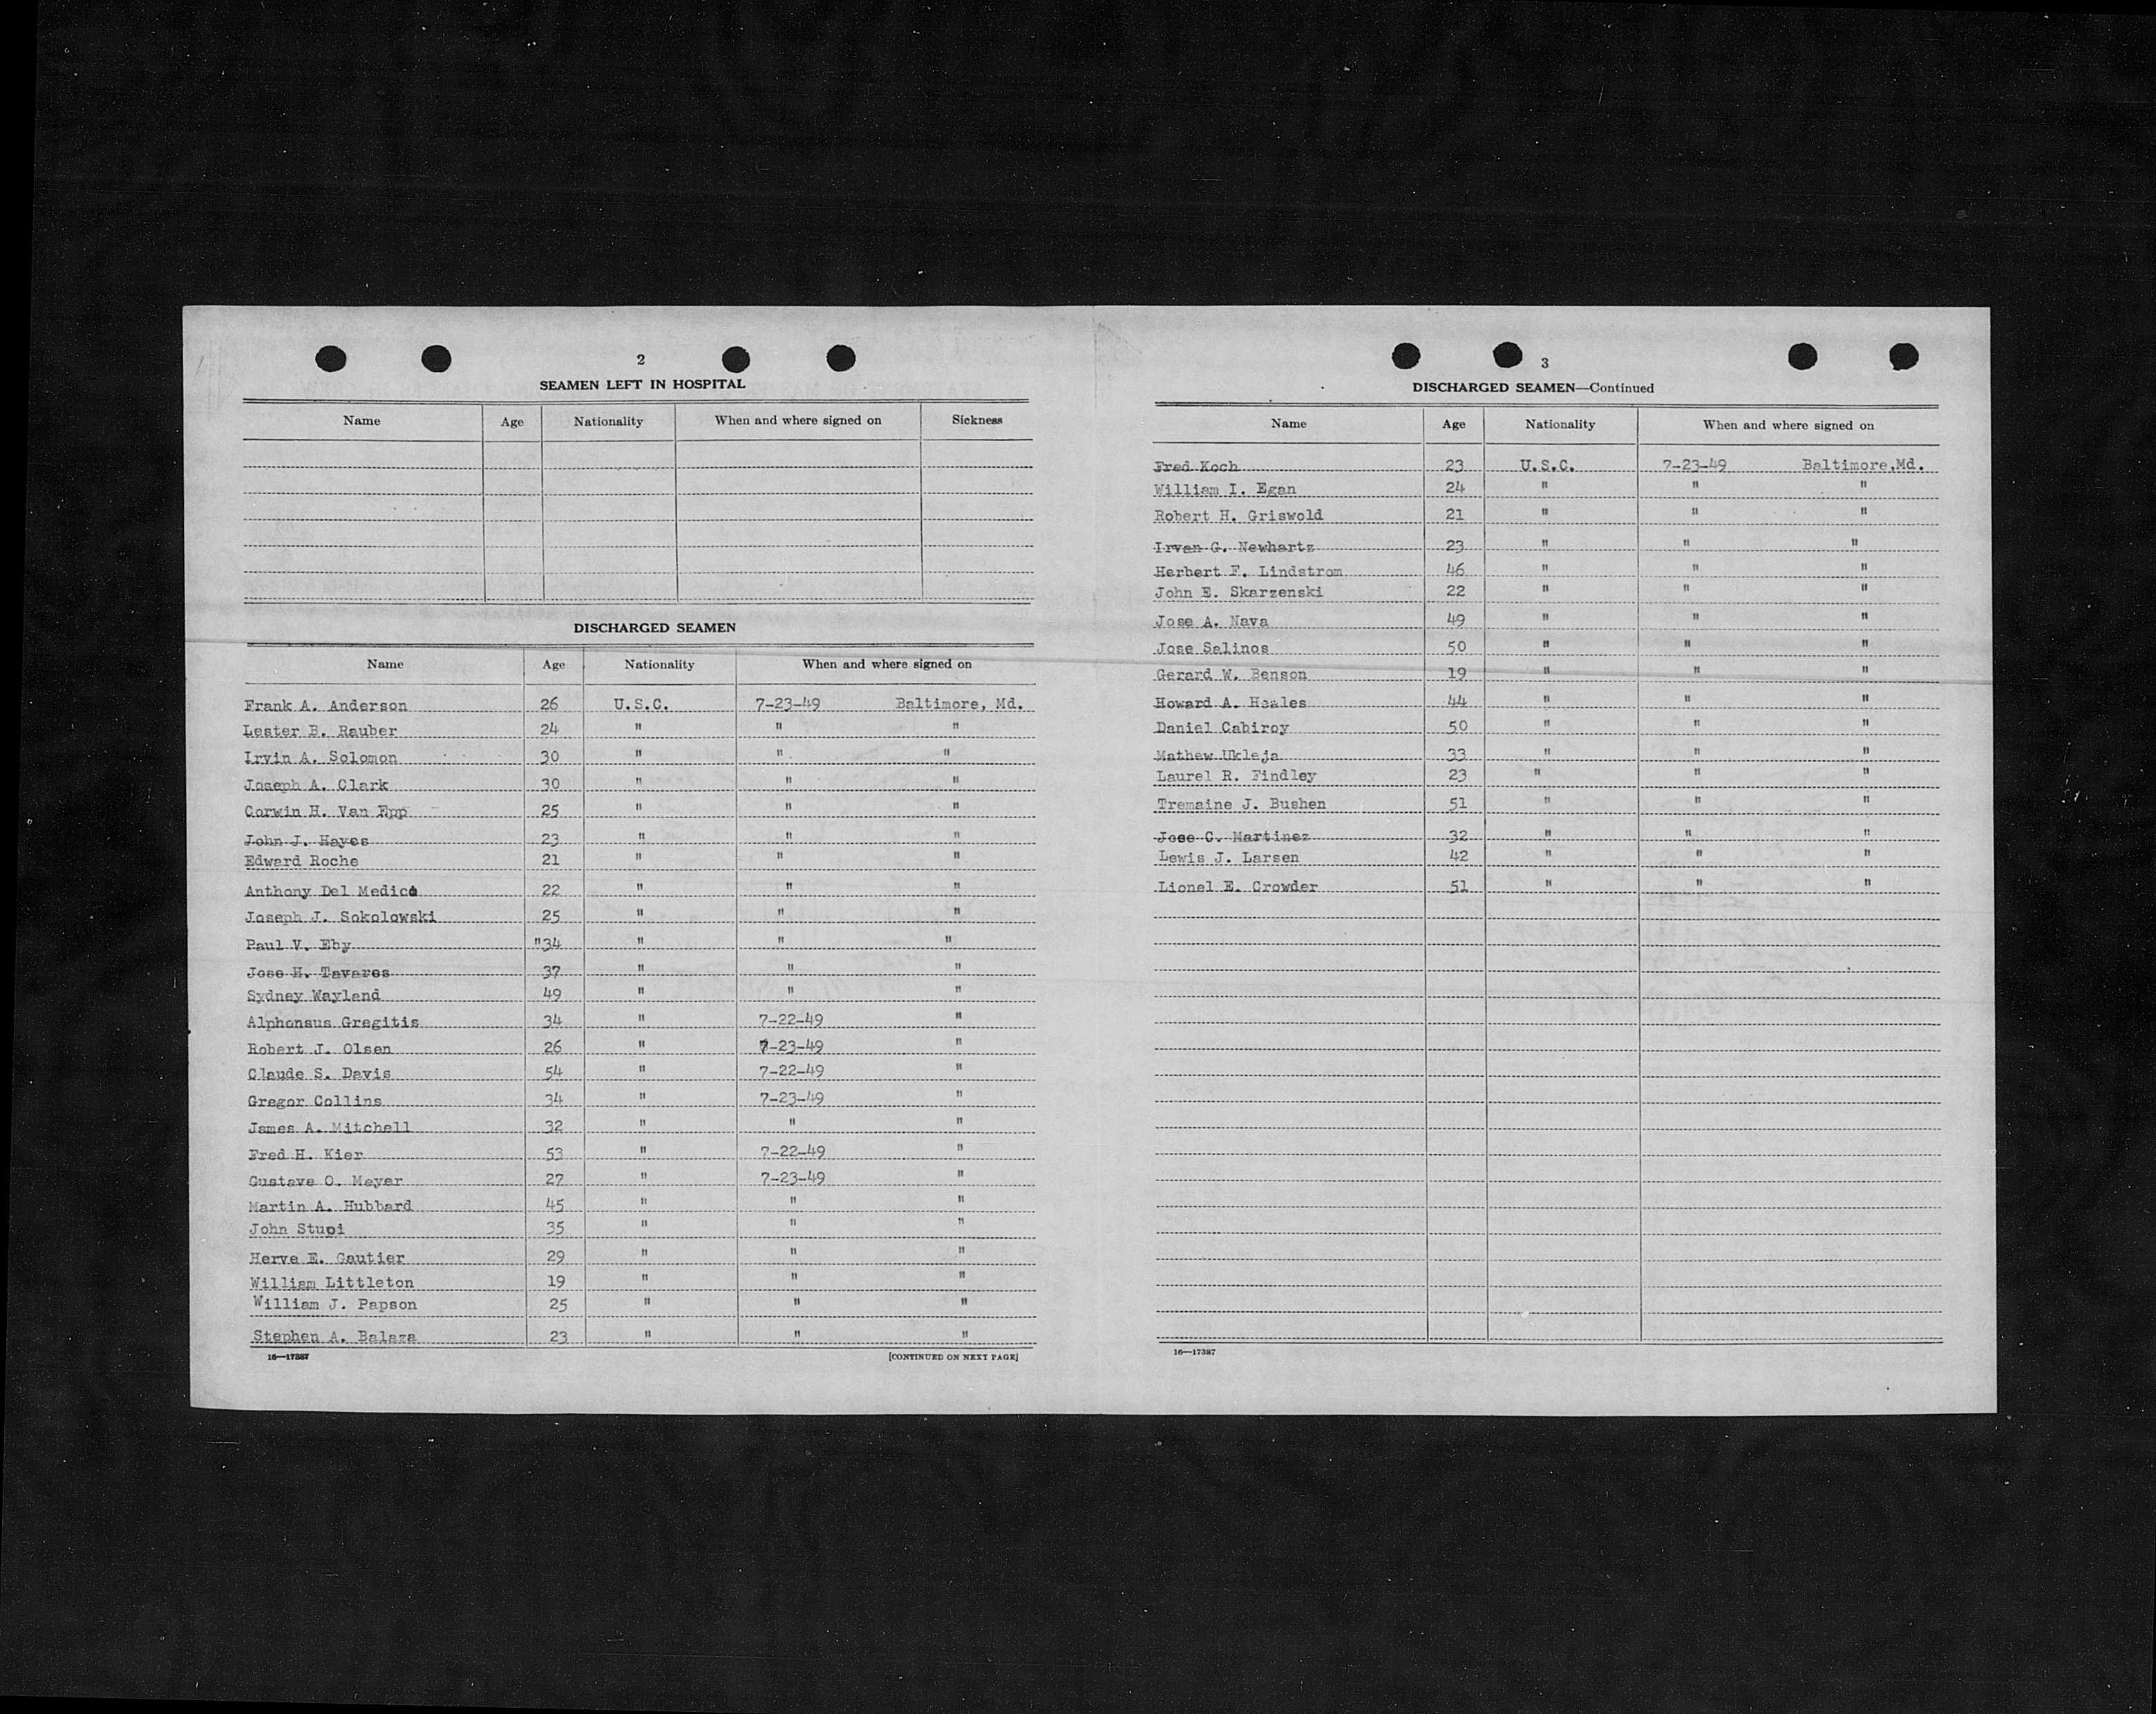 2
SEAMEN LEFT IN HOSPITAL
Name Age Nationality When and where signed on Sickness
DISCHARGED SEAMEN
Name Age Nationality When and where signed on
Frank A. Anderson 26 U.S.C. 7-23-49 Baltimore, Md.
Lester B. Rauber 24 " " "
Irvin A. Solomon 30 " " "
Joseph A. Clark 30 " " "
Corwin H. Van Epp 25 " " "
John J. Hayes 23 " " "
Edward Roche 21 " " "
Anthony Del Medico 22 " " "
Joseph J. Sokolowski 25 " " "
Paul V. Eby "34 " " "
Jose H. Tavares 37 " " "
Sydney Wayland 49 " " "
Alphonsus Gregitis 34 " 7-22-49 "
Robert J. Olsen 26 " 7-23-49 "
Claude S. Davis 54 " 7-22-49 "
Gregor Collins 34 " 7-23-49 "
James A. Mitchell 32 " " "
Fred H. Kier 53 " 7-22-49 "
Gustave O. Meyer 27 " 7-23-49 "
Martin A. Hubbard 45 " " "
John Stupi 35 " " "
Herve E. Gautier 29 " " "
William Littleton 19 " " "
William J. Papson 25 " " "
Stephen A. Balaza 23 " " "
16—17387 [CONTINUED ON NEXT PAGE]
3
DISCHARGED SEAMEN—Continued
Name Age Nationality When and where signed on
Fred Koch 23 U.S.C. 7-23-49 Baltimore,Md.
William I. Egan 24 " " "
Robert H. Griswold 21 " " "
Irvan G. Newhartz 23 " " "
Herbert F. Lindstrom 46 " " "
John E. Skarzenski 22 " " "
Jose A. Nava 49 " " "
Jose Salinos 50 " " "
Gerard W. Benson 19 " " "
Howard A. Heales 44 " " "
Daniel Cabiroy 50 " " "
Mathew Ukleja 33 " " "
Laurel R. Findley 23 " " "
Tremaine J. Bushen 51 " " "
Jose C. Martinez 32 " " "
Lewis J. Larsen 42 " " "
Lionel E. Crowder 51 " " "
16—17387